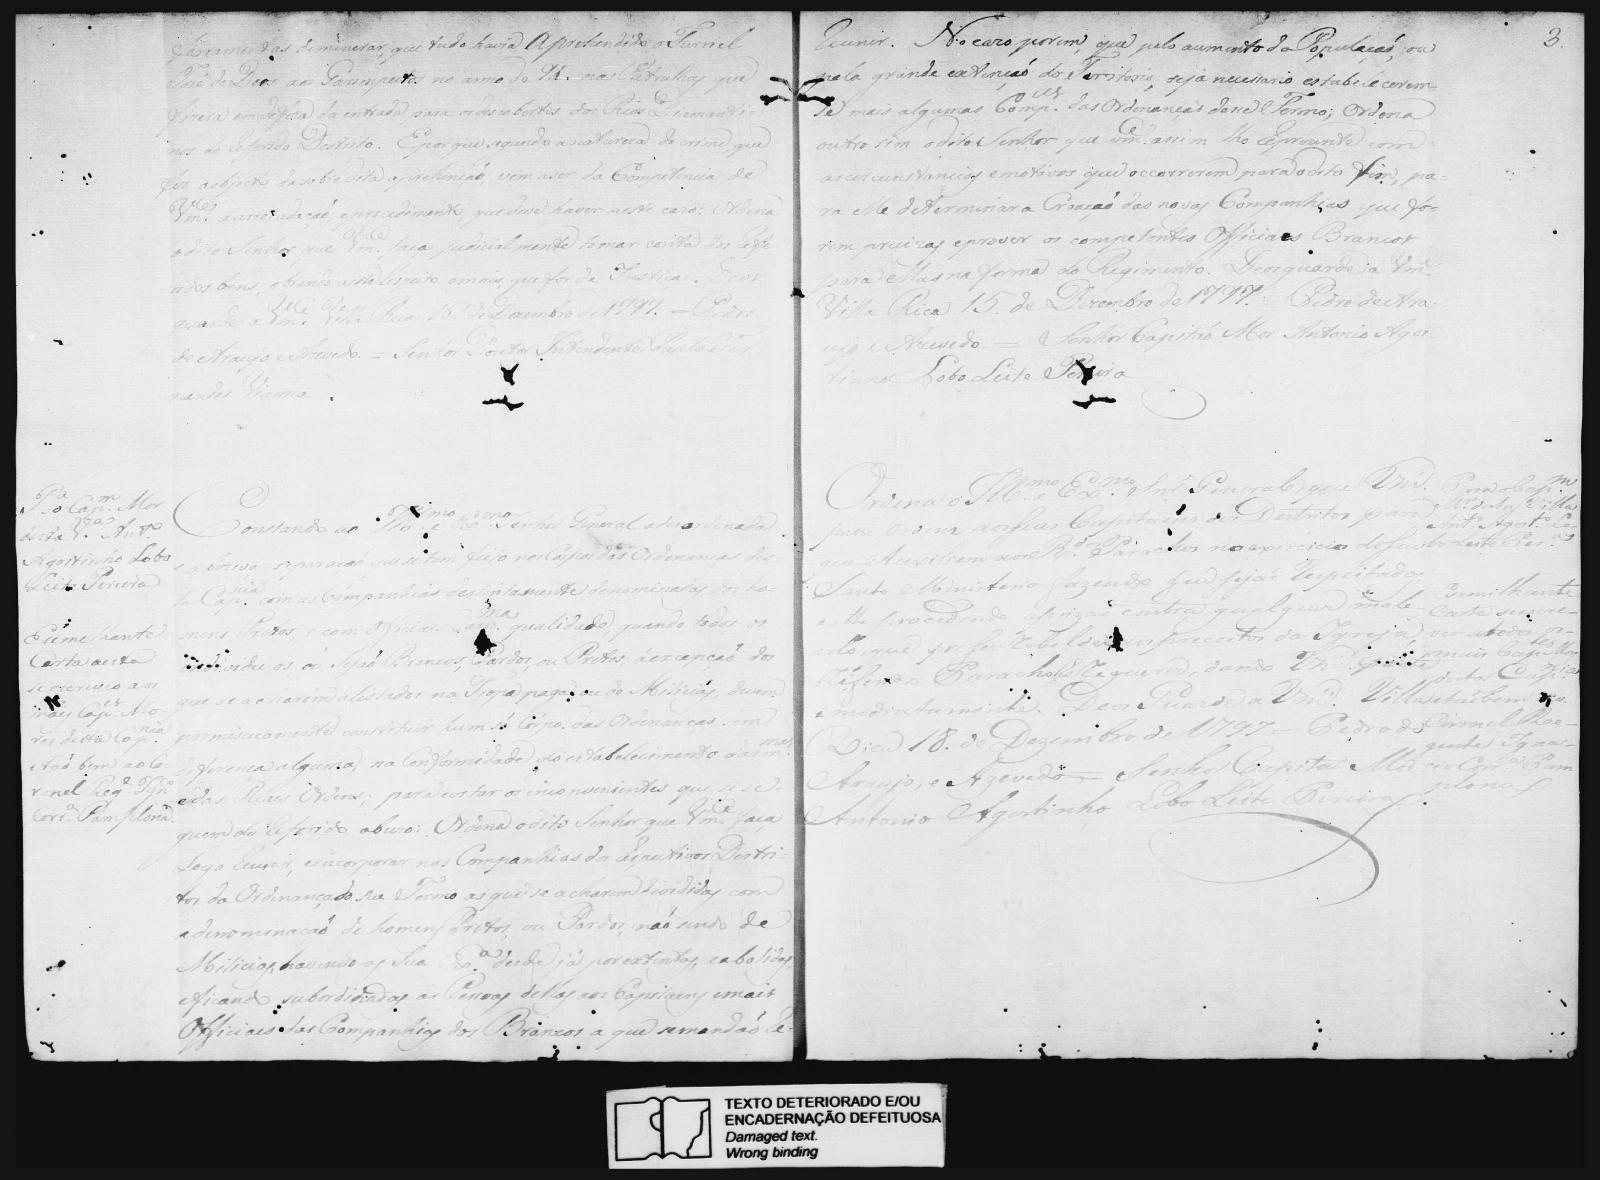 ferramentas de minerar, que tudo havia Aprehendido o Furriel
José de Deos aos Garimpeiros no anno de 91. nas Patrulhas que
fizera em defeza da entrada para os descubertos dos Rios Diamanti-
nos do referido Destrito. E por que segundo a natureza do crime, que
fez a objecto da sobredita aprehenção, vem a ser da Competencia de
Vm.ce a arrecadação, e procedimento, que deve haver neste cazo: Ordena
o dito Senhor que Vm.ce faça judicialmente tomar conta dos refe-
ridos bens, obrando a este respeito o mais, que for de Justiça. Deos
guarde a Vm.ce Villa Rica 15 de Dezembro de 1797. = Pedro
de Araujo e Azevedo. = Senhor Doutor Intendente Paulo Fer
nandes Vianna.
P.a o Cap.m Mor
desta V.a Ant.o
Agostinho Lobo
Leite Pereira
E semelhante
Carta a esta
se escreveo aos
mais Cap.es Mo-
res desta Cap.nia
e taõ bem ao Co-
ronel Reg.e Ign.co
Corr.a Pamplona.
Constando ao Ill.mo e Ex.mo Senhor General a desordenada
e abusiva separação, que se tem feito nos Corpos das Ordenansas des-
ta Cap.nia com as Companhias destintamente denominadas dos ho-
mens Pretos, e com Officiaes da m.ma qualidade, quando todos os
individuos, ou sejaõ Brancos, Pardos, ou Pretos, á excepçaõ dos
que se acharem alistados na Tropa paga, ou de Milicias, devem
promiscuamente constituir hum só Corpo das Ordenanças sem
diferença alguma, na Conformidade do estabelecimento das m.mas
e das Reaes Ordens; para evitar os inconvenientes que se se-
guem do referido abuzo: Ordena o dito Senhor que Vm.ce faça
Logo reunir, e incorporar nas Companhias dos respectivos Destri-
tos da Ordenança do seu Termo as que se acharem divididas com
a denominaçaõ de homens Pretos, ou Pardos, naõ sendo de
Milicias, havendo-as Sua Ex.a desde já por extintas, e abolidas,
e ficando subordinadas as Pessoas dellas aos Capitaens e mais
Officiaes das Companhias dos Brancos a que se mandaõ re-
3.
reunir. No cazo porem, que pelo aumento da Populaçaõ, ou
pela grande extençaõ do Territorio, seja necessario estabelecerem-
se mais algumas Comp.as das Ordenanças desse Termo; Ordena
outro sim o dito Senhor que Vm.ce assim lho reprezente com
as circunstancias, e motivos que occorrerem para o dito fim, pa-
ra elle determinar a Creaçaõ das novas Companhias que fo-
rem precizas, e prover os competentes Officiaes Brancos
para ellas na forma do Regimento. Deos guarde a Vm.ce
Villa Rica 15. de Dezembro de 1797. = Pedro de Ara-
ujo e Azevedo. = Senhor Capitaõ Mor Antonio Agos-
tinho Lobo Leite Pereira
Ordena o Ill.mo e Ex.mo Snr. General, que Vm.ce
passe ordem aos seus Capitaens dos Destritos para
que Auxiliem aos R.dos Parachos no exercicio do seu
Santo Ministerio fazendo que sejaõ respeitados
e procedendo a prizaõ contra qualquer male-
volo, que for rebelde aos preceitos da Igreja,
referido Paracho lho requeira, dando Vm.ce parte
immediatamente. Deos Guarde a Vm.ce Villa
Rica 18. de Dezembro de 1797 = Pedro de
Araujo, e Azevedo = Senhor Capitaõ Mor
Antonio Agostinho Lobo Leite Pereira
Para o Cap.m
M.r desta Villa
Ant.o Agost.o Lo-
bo Leite Per.a
Semilhante
Carta se escre-
veo a todos os
mais Cap.es Mores
desta Cap.nia
e taõ bem ao
Coronel Re-
gente Ignac-
cio Corr.a Pam
plona
TEXTO DETERIORADO E/OU
ENCADERNAÇÃO DEFEITUOSA
Damaged text.
Wrong binding